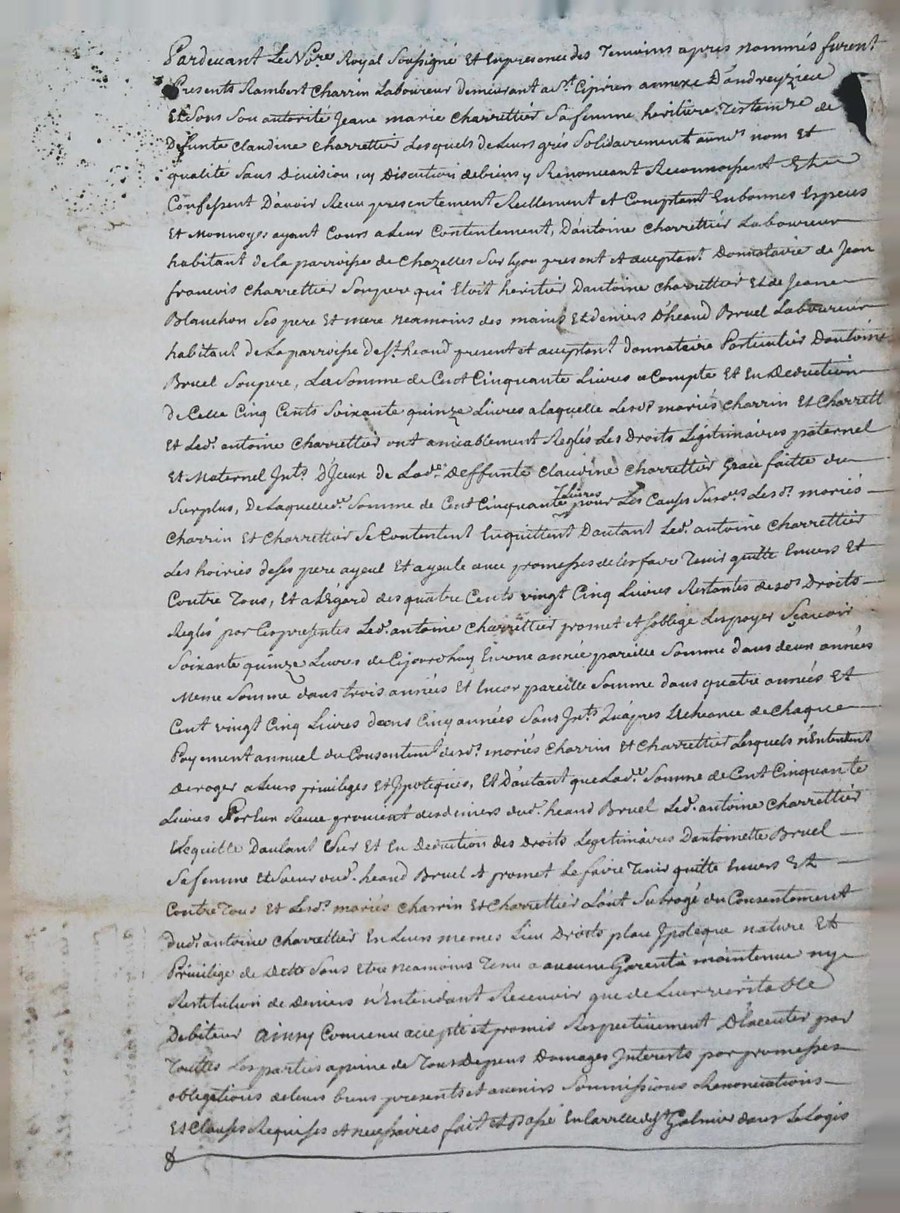 Pardevant Le No.re Royal Soussigné Et Enpresence des Temoins apres nommés furent
Presents Rambert Charrin Laboureur demeurant a St. Ciprien annexe D'andreyzieu
Et Sous Son autorité Jeane marie Charrettier Sa femme heritiere Testam.re de
Defunte Claudine Charrettier Lesquels de Leurs gres Solidairement auxd.s nom Et
qualité Sans Division, ny Discution debiens y Renonceant Reconnoissent Et
Confessent D'avoir Receu presentement Reellement et Comptant Enbonnes Especes
Et Monnoyes ayant Cours a Leur Contentement, D'antoine Charrettier Laboureur
habitant de La parroisse de Chazelles Sur Lyon present et acceptant Donnataire de Jean
francois Charrettier Son pere qui Etoit heritier D'antoine Charrettier Et de Jeane
Blanchon Ses pere Et mere neamoins des mains Et deniers D'heand Bruel Laboureur
habitant de La parroisse de St heand present et acceptant donnataire Particulier D'antoine
Bruel Son pere, La Somme de Cent Cinquante Livres a Compte Et En Deduction
de Celle Cinq Cents Soixante quinze Livres a laquelle Lesd.s mariés Charrin Et Charrett
Et Led. antoine Charrettier ont amicablement Reglés Les Droits Légitimaires paternel
Et Maternel Jnt.s D'Jceux de Lad.e Deffunte Claudine Charrettier Grace faitte du
Surplus, De Laquelle d.e Somme de Cent Cinquante Livres pour Les Causes Susd.es Lesd.s mariés
Charrin Et Charrettier Se Contentent Enquittent D'autant Led. antoine Charrettier
Les hoiries de Ses pere ayeul Et ayeule avec promesses de Les faire Tenir quitte Envers Et
Contre Tous, Et a L'égard des quatre Cents vingt Cinq Livres Restantes desd.s Droits
Reglés par Ces presentes Led. antoine Charrettier promet et S'oblige Les payer Sçavoir
Soixante quinze Livres de Cejourdhuy En une année pareille Somme dans deux années
Meme Somme dans trois années Et Encor pareille Somme dans quatre années Et
Cent vingt Cinq Livres dans Cinq années Sans Jnt.s Qu'apres L'Echeance de Chaque
Payement annuel du Consentem.t desd.s mariés Charrin Et Charrettier Lesquels n'Entendent
Deroger a Leurs privileges Et Jpoteques, Et D'autant que Lad.e Somme de Cent Cinquante
Livres Receue provient des deniers dud. heand Bruel Led. antoine Charrettier
D'autant Sur Et En Deduction des Droits Legitimaires D'antoinette Bruel
Sa femme Et Soeur dud. heand Bruel Et promet Le faire Tenir quitte Envers Et
Contre Tous Et Lesd.s mariés Charrin Et Charrettier L'ont Subrogé du Consentement
dud. antoine Charrettier En Leurs memes Lieu Droits place Jpoteque nature Et
Privilege de Dette Sans Etre neamoins Tenu a aucune Garentie maintenue ny
Restitution de Deniers n'Entendant Recevoir que de Leur veritable
Debiteur Ainsy Convenu accepté et promis Respectivement D'executer par
Touttes Les parties apeine de Tous Depens Domages Jnterets par promesses
obligations de Leurs biens presents et avenirs Soumissions Renonciations
Et Clauses Requises et necessaires fait et Passé En la ville de St Galmier dans Le Logis